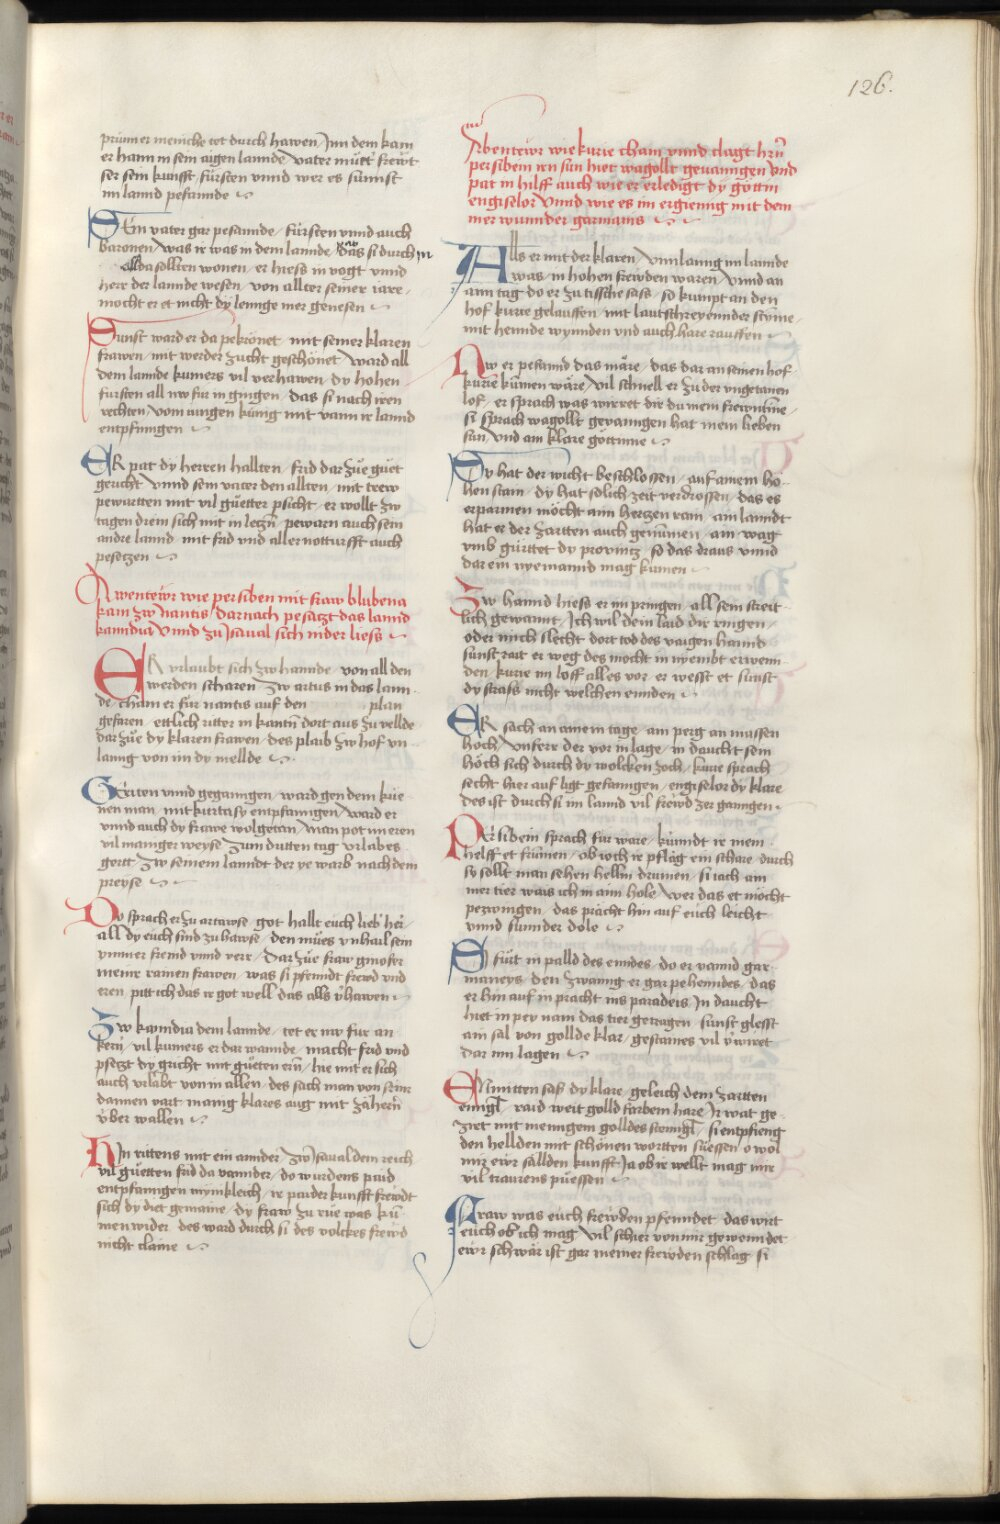 126.
prünn er meniche tot durch hawen Inn dem kam
er hann in sein aigen lannde vater müet frewt
ser sein kunfft fürsten vnnd wer es sunnst
im lannd pesannde
Sein vater gar pesannde fürsten vnnd auch
baronen was ir was in dem lannde das si durch in
all da sollten wonen er hiess in vogt vnnd
herr der lannde wesen von allter seiner iare
mocht er et nicht dy lennge mer genesen
Sunst ward er da pekrönet mit seiner klaren
frawen mit werder zucht geschönet ward all
dem lannde kumers vil verhawen dy hohen
fursten all nw fur in gingen das si nach iren
rechten vom iungen künig mit vann ir lannd
entpfingen
ER pat dy herren hallten frid dar zue guet
gericht vnnd sein vater den allten mit trew
pewartten mit vil guetter pficht er wollt zw
tagen drein sich mit in letzn pewarn auch sein
andre lannd mit frid vnd aller notturfft auch
pesetzen
Awentewr wie persiben mit fraw blubena
kam zw nantis darnach pesatzt das lannd
kanndia vnnd zu Isaual sich nider liess
ER vrlaubt sich zw hannde von all den
werden scharen zw artus in das lann
de cham er für nantis auf den plan
gefaren ettlich ritter in kantn dort aus zu vellde
dar zue dy klaren frawen des plaib zw hof vn
lanng von im dy mellde
Geriten vnnd geganngen ward gen dem küe
nen man mit kurtasy entpfanngen ward er
vnnd auch dy frawe wolgetan man pot im eren
vil manniger weyse zum dritten tag vrlabes
gertt zw seinem lanndt der ye warb nach dem
preyse
Do sprach er zu artawse got hallt euch lieb her
all dy euch sind zu hawse den mües vnhail sein
ymmer fremd vnnd verr Dar zue fraw ginofer
meine rainen frawen was si pfenndt frewd vnd
eren pitt ich das ir got well das alls vhawen
Zw kanndia dem lannde tet er nw für an
kern vil kumers er dar wannde macht frid vnd
psetzt dy gricht mit guetten ern hie mit er sich
auch vrlabt von in allen des sach man von seiner
dannen vart manig klares aug mit zähern
vber wallen
Hin rittens mit ein annder zw Isaual dem reich
vil guetten frid da vannder do wurdens paid
entpfanngen mynnkleich ir paider kunfft frewdt
sich dy diet gemaine dy fraw zu rüe was kü
men wider des ward durch si des volckes frewd
nicht claine
Abentewr wie kurie cham vnnd clagt hrn
persibein irn sun hiet wagollt gevanngen vnd
pat in hilff auch wie er erledigt dy göttin
engiselor vnnd wie es im ergienng mit dem
mer wunnder garmanis
Alls er mit der klaren vnnlanng im lannde
was in hohen frewden waren vnnd an
ainn tag do er zu tissche sass so kumpt an den
hof kurie gelauffen mit lautschreyennder stymme
mit hennde wynnden vnd auch hare rauffen
Nw er pesannd das märe das dar an seinen hof
kurie kumen wäre vil schnell er zu der vngetanen
lof er sprach was wirret dir du mein frewntinne
si sprach wagollt gevanngen hat mein lieben
sun vnd ain klare gottinne
Dy hat der wicht beschlossen auf ainem ho
hen stain dy hat solich zeit verdrossen das es
erparmen möcht ainn hertzen rain ain lanndt
hat er der zartten auch genümen ain wag
vmb gürttet dy provintz so das draus vnnd
dar ein nyemannd mag kumen
Zw hannd hiess er im pringen all sein streit
lich gewannt Ich wil dein laid dir ringen
oder mich slecht dort tod des vaigen hannd
sunst rait er weg des mocht in nyembt erwenn
den kurie im löff alles vor er wesst et sunst
dy strass nicht welchen ennden
ER sach an ainem tage ain perg an massen
hoch vnferr der vor in lage in daucht sein
höch sich durch dy wolcken zoch kurie sprach
secht hier auf ligt gefanngen engiselor dy klare
des ist durch si im lannd vil frewd zer ganngen
Persibein sprach für ware künndt ir mein
helff et frümen ob ioch ir pfläg ein schare durch
sy sollt man sehen hellm drumen si iach ain
mer tier wais ich in aim hole wer das et möcht
pezwingen das prächt hin auf euch leicht
vnnd sunnder dole
Si fürt in palld des enndes do er vannd gar
maneys den zwanng er gar pehenndes das
er hin auf in pracht ins paradeis In daucht
hiet in pey nam das tier getragen sunst glesst
ain sal von gollde klar gestaines vil v̈ wiret
dar inn lagen
Enmitten sass dy klare geleich dem zartten
enngl raid weit golld farbem hare Ir wat ge
ziert mit mennigem golldes stenngl si entpfieng
den hellden mit schönen wortten süessen o wol
mir ewr sällden kunfft Ia ob ir wellt mag mir
vil traurens püessen
Fraw was euch frewden pfenndet das wirt
euch ob ich mag vil schier von mir gewenndet
ewr schwär ist gar meiner frewden schlag si